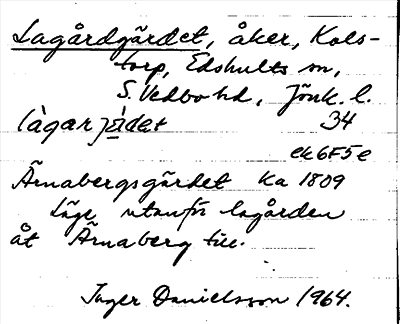 Lagårdgärdet, åker, Kols-
torp, Edshults sn,
S. Vedbo hd, Jönk. l.
làgarjä̀det 34
ek6F5e
Ärnabergsgärdet ka 1809
Läge utanför lagården
åt Ärnaberg till.
Inger Danielsson 1964.